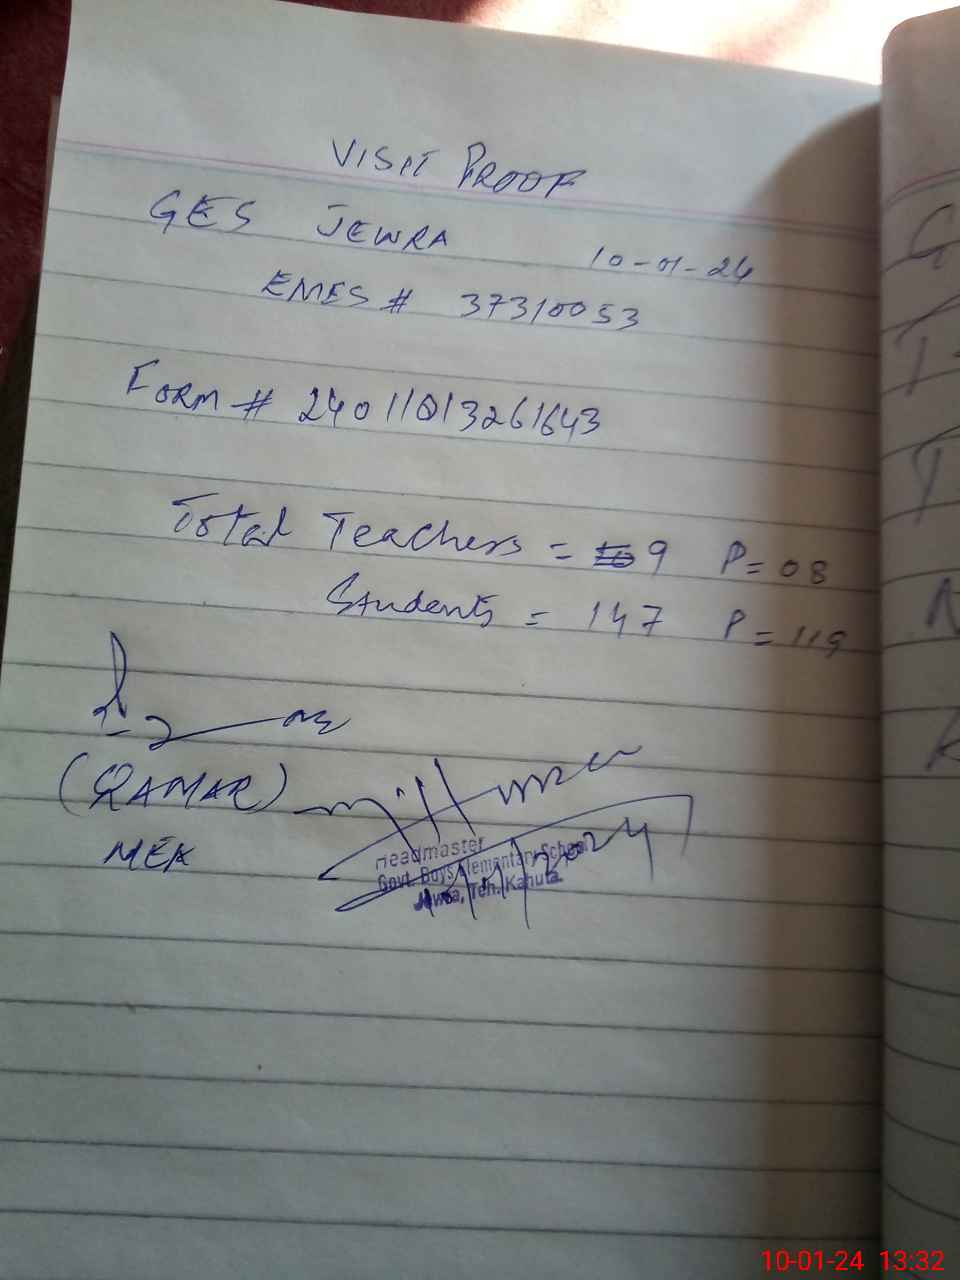 VISIT PROOF
GES JEWRA 10-01-24
EMES # 37310053
FORM # 24011013261643
Total Teachers = 9 P = 08
Students = 147 P = 119
(QAMAR)
MEA
Headmaster
Govt. Boys Elementary School
Jewra, Teh. Kahuta
10-01-24 13:32